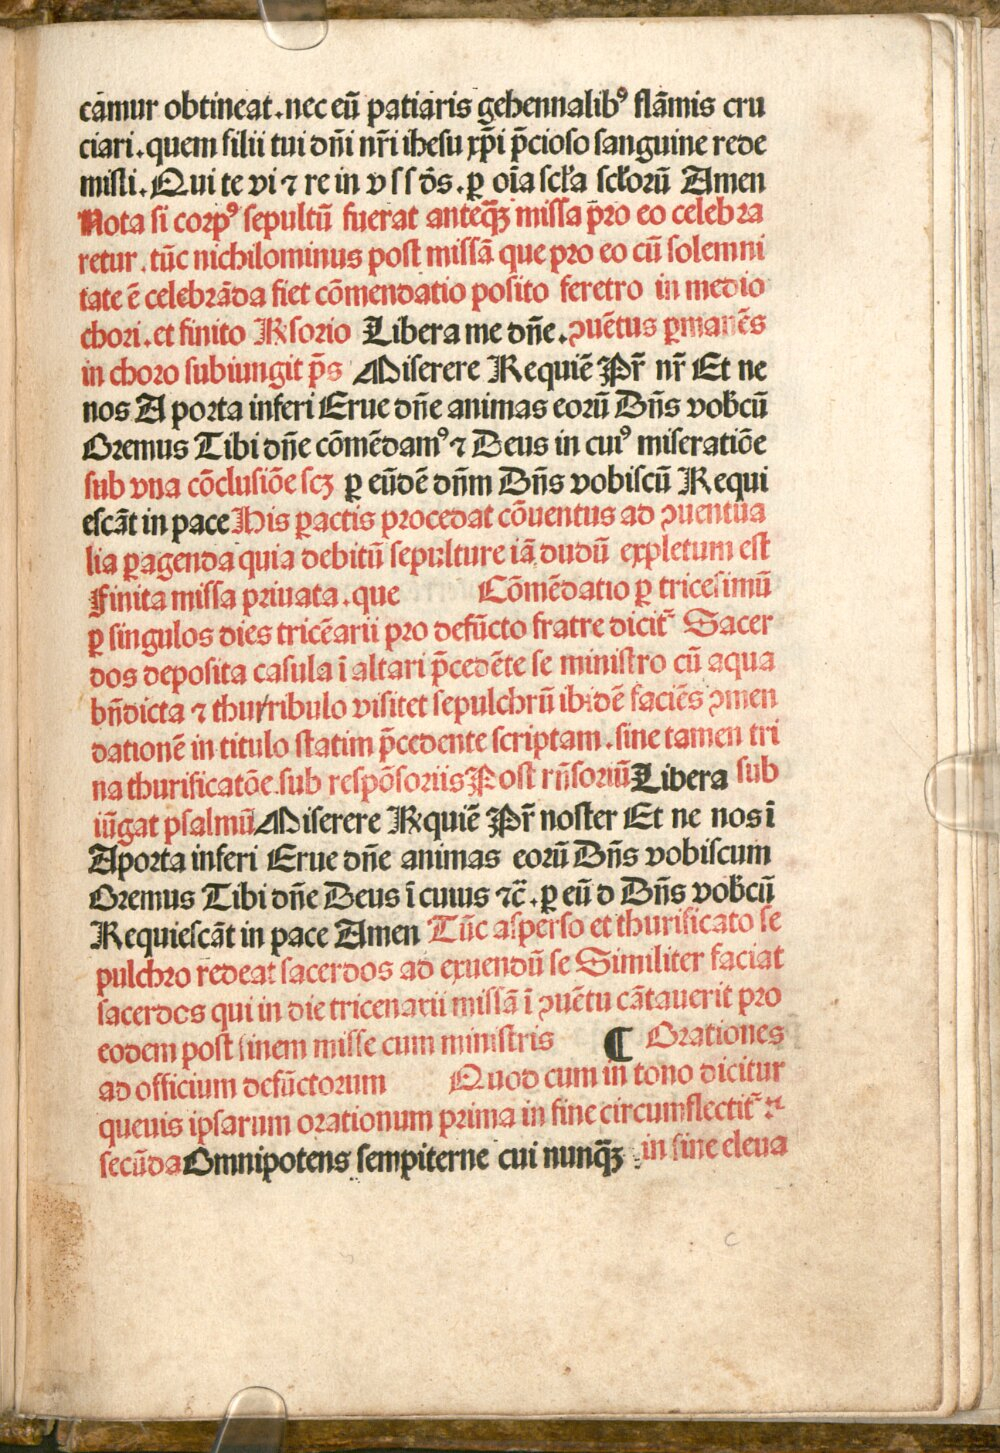 cāmur obtineat.nec eū patiaris gehennalibꝰ flāmis cru
ciari.quem filii tui dn̄i nr̄i ihesu xp̄i p̄cioso sanguine rede
misti.Qui te vi ⁊ re in v s s d̄s.ꝑ oīa scła sclorū Amen
Nota si corpꝰ sepultū fuerat anteqꝫ̄ missa pro eo celebra
retur.tūc nichilominus post missā que pro eo cū solemni
tate ē celebrāda fiet cōmendatio posito feretro in medio
chori.et finito Rsorio Libera me dn̄e.ꝯuētus ꝑmanēs
in choro subiungit p̄s Miserere Requiē Pr̄ nr̄ Et ne
nos A porta inferi Erue dn̄e animas eorū Dn̄s vob̄cū
Oremus Tibi dn̄e cōmēdamꝰ ⁊ Deus in cuiꝰ miseratiōe
sub vna cōclusiōe scꝫ ꝑ eūdē dn̄m Dn̄s vobiscū Requi
escāt in pace His ꝑactis procedat cōuentus ad ꝯuentua
lia ꝑagenda quia debitū sepulture iā dudū expletum est
Finita missa priuata.que Cōmēdatio ꝑ tricesimū
ꝑ singulos dies tricēarii pro defūcto fratre dicit᷑ Sacer
dos deposita casula ī altari p̄cedēte se ministro cū aqua
bn̄dicta ⁊ thurribulo visitet sepulchrū ibidē faciēs ꝯmen
dationē in titulo statim p̄cedente scriptam.sine tamen tri
na thurificatōe.sub respōsoriis Post rn̄soriū Libera sub
iūgat psalmū Miserere Rquiē Pr̄ noster Et ne nos ī
Aporta inferi Erue dn̄e animas eorū Dn̄s vobiscum
Oremus Tibi dn̄e Deus ī cuius ⁊c̄.ꝑ eū d Dn̄s vob̄cū
Requiescāt in pace Amen Tūc asperso et thurificato se
pulchro redeat sacerdos ad exuendū se Similiter faciat
sacerdos qui in die tricenarii missā ī ꝯuētu cātauerit pro
eodem post finem misse cum ministris ¶ Orationes
ad officium defūctorum Quod cum in tono dicitur
queuis ipsarum orationum prima in fine circumflectit᷑ ⁊
secūda Omnipotens sempiterne cui nunqꝫ̄ in fine eleua